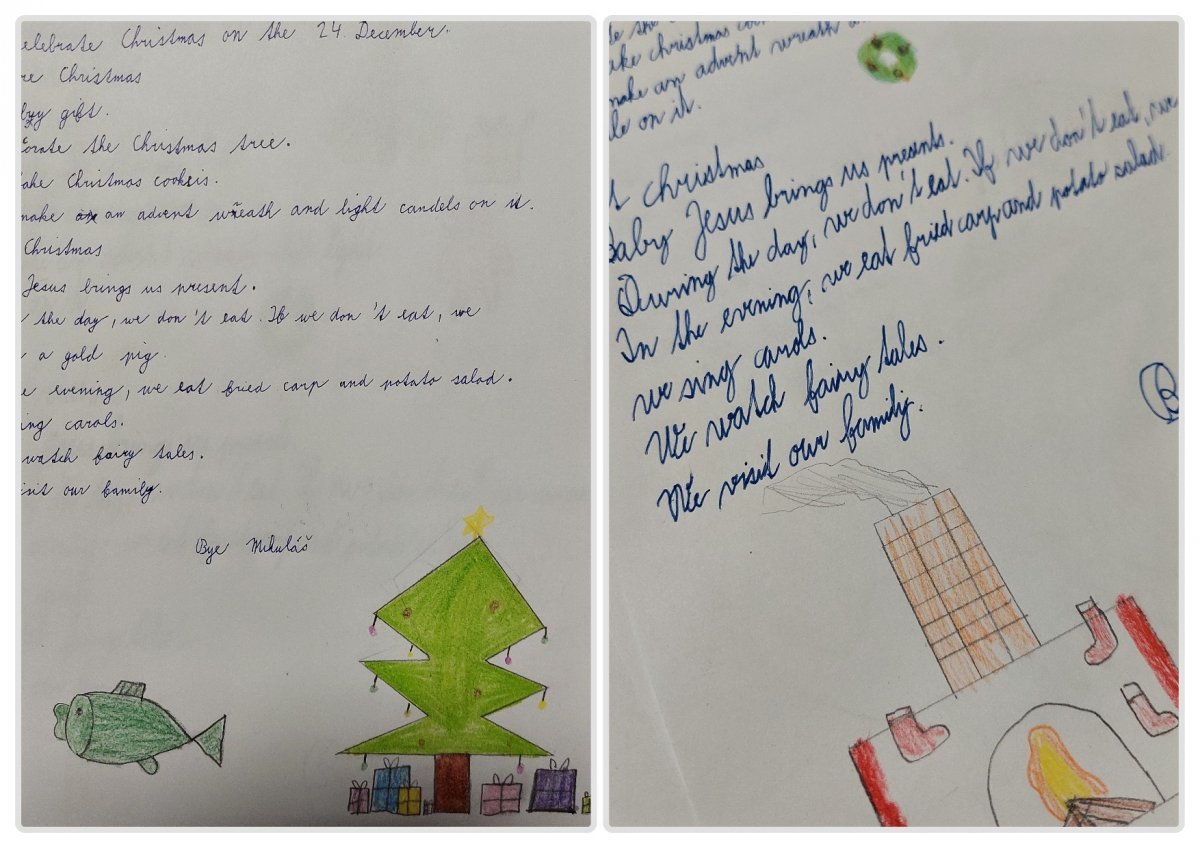 elebrate Christmas on the 24. December.
re Christmas
gift.
orate the Christmas tree.
ake Christmas cookeis.
make an advent wreath and light candels on it.
Christmas
Jesus brings us present.
the day, we don't eat. If we don't eat, we
a gold pig.
e evening, we eat fried carp and potato salad.
ing carols.
watch fairy tales.
isit our family.
Bye Mikuláš
ke christmas
make an advent wreath
le on it.
t christmas
Baby Jesus brings us presents.
Duwring the day, we don't eat. If we don't eat, we
In the evening, we eat fried carp and potato salad.
we sing carols.
We watch fairy tales.
We visit our family.
B